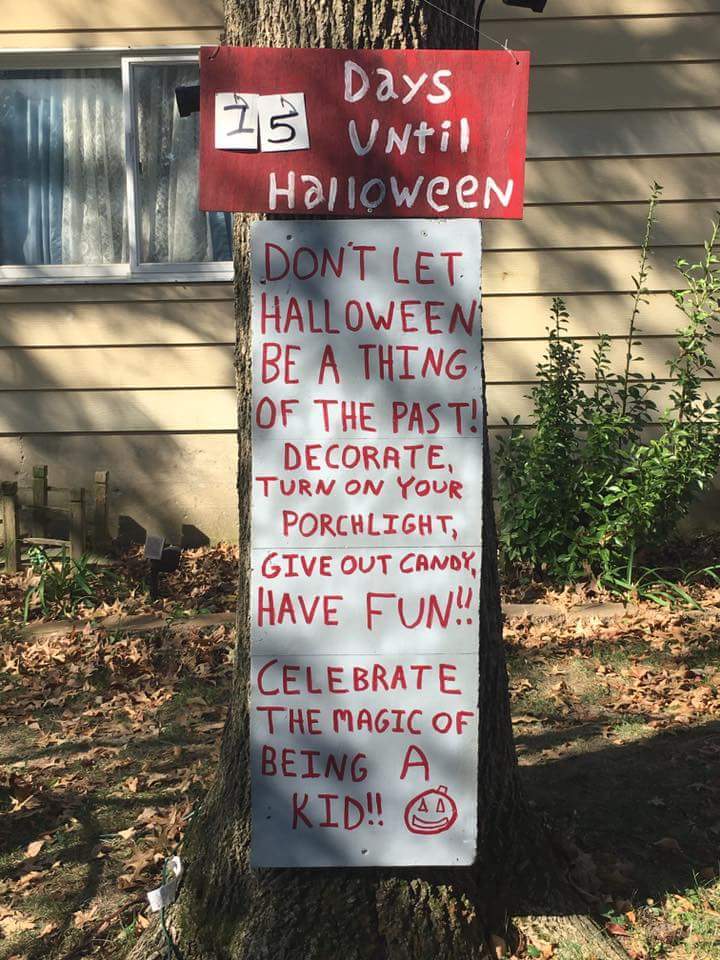 15 Days
Until
Halloween
DON'T LET
HALLOWEEN
BE A THING
OF THE PAST!
DECORATE,
TURN ON YOUR
PORCHLIGHT,
GIVE OUT CANDY,
HAVE FUN!!
CELEBRATE
THE MAGIC OF
BEING A
KID!!